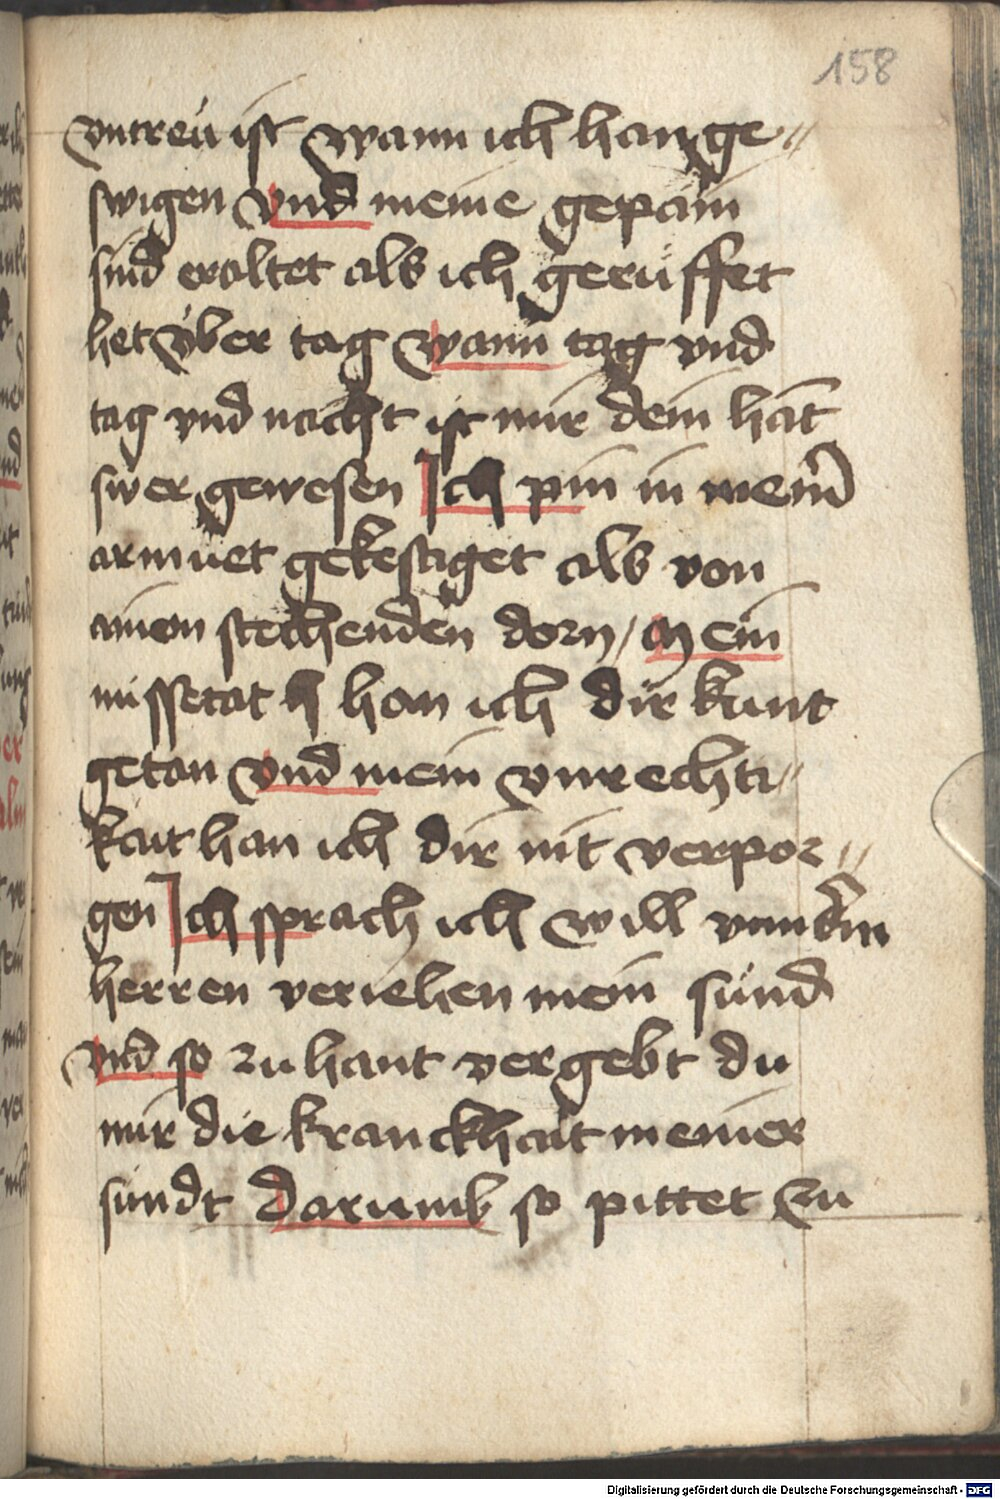 158
vntreu ist wann ich han ge//
swigen vnd meine gepain
sind eraltet als ich gerüffet
het über tag wann tag vnd
tag vnd nacht ist mir dein hāt
swer gewesen Ich pin in meinē
armuet gekestiget als von
ainen stechenden dorn / Mein
missetat h han ich dir kunt
getan vnd mein vnrechti//
kait han ich dir nit verpor//
gen Ich sprach ich will
herren veriehen mein sünd
vnd so zu hant vergebt du
mir die kranckhait meiner
sündt darumb so pittet zu
Digitalisierung gefördert durch die Deutsche Forschungsgemeinschaft - DFG